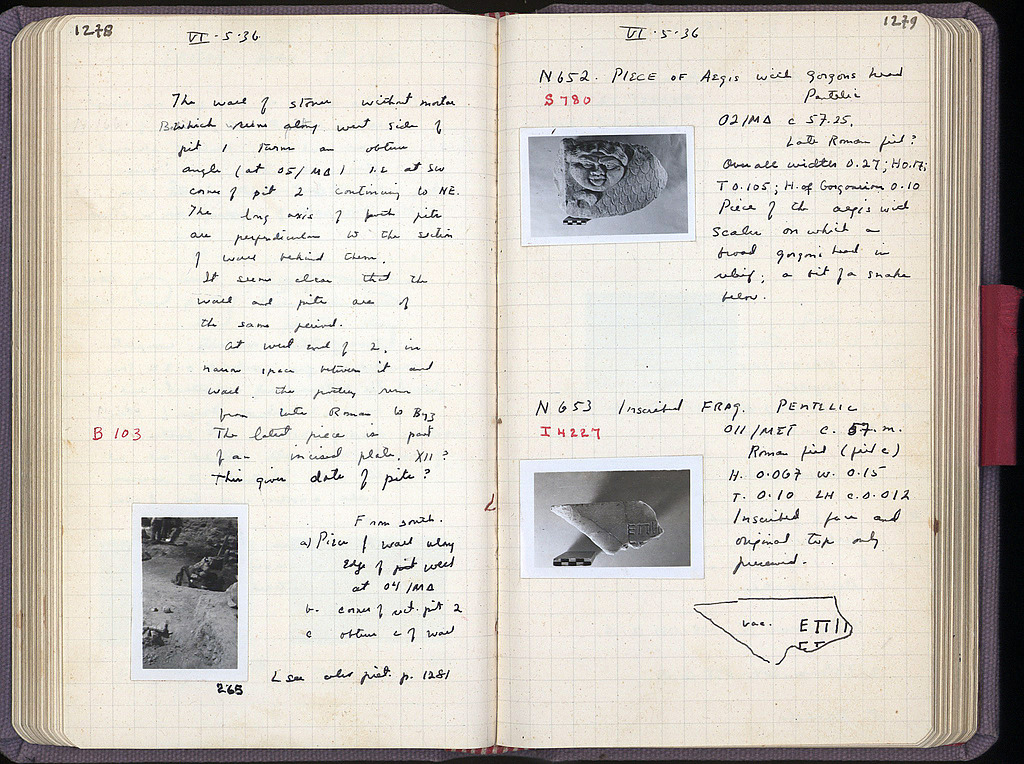 1278
VI · 5 · 36
The wall of stones without mortar
which runs along west side of
pit 1 turns an obtuse
angle (at 05/ΜΔ) i.e. at SW
corner of pit 2 continuing to NE.
The long axis of both pits
are perpendicular to the section
of wall behind them.
It seems clear that the
wall and pits are of
the same period.
At west end of 2, in
narrow space between it and
wall the pottery runs
from late Roman to Byz
B 103
The latest piece is part
of an incised plate. XII?
This gives date of pits?
From south.
a) Piece of wall along
edge of pit west
at 04/ΜΔ
b. corner of rect. pit 2
c obtuse c of wall
L see also pict. p. 1281
265
1279
VI · 5 · 36
N 652. PIECE OF Aegis with gorgons head
Pentelic
S 780
02/ΜΔ c 57.25.
Late Roman fill?
Overall width 0.27; H 0.17;
T 0.105; H. of Gorgoneion 0.10
Piece of the aegis with
scales on which a
broad gorgons head in
relief; a bit of a snake
below.
N 653 Inscribed FRAG. PENTELIC
I 4227
011/ΜΣΤ c. 57. m.
Roman fill (pit c)
H. 0.067 W. 0.15
T. 0.10 LH c. 0.012
Inscribed face and
original top only
preserved.
vac. ΕΠΙ